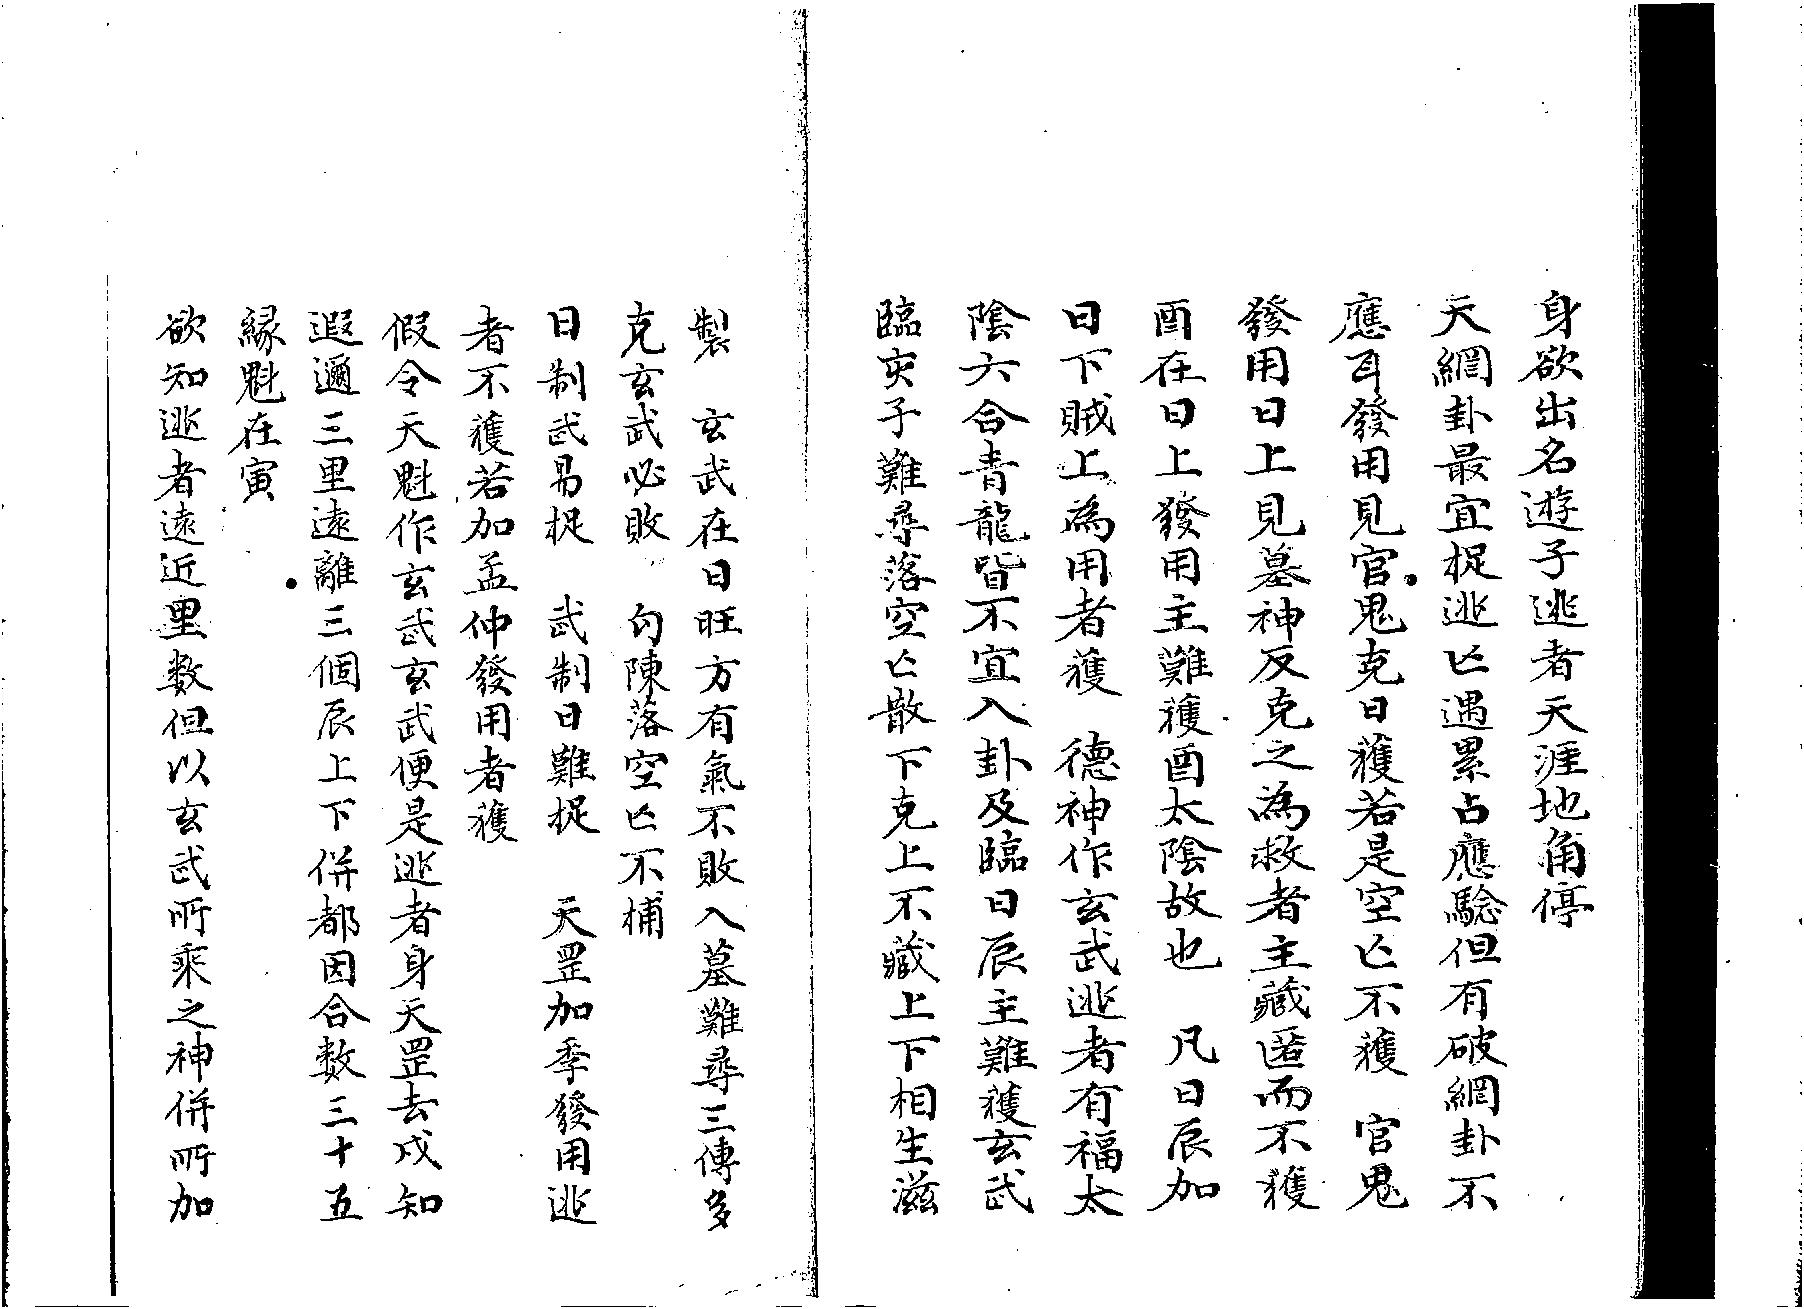 身欲出名遊子逃者天涯地角停
天網卦最宜捉逃亡遇累占應驗但有破網卦不
應耳發用見官鬼克日獲若是空亡不獲　官鬼
發用日上見墓神反克之為救者主藏匿而不獲
酉在日上發用主難獲酉太陰故也　凡日辰加
日下賊上為用者獲　德神作玄武逃者有福太
陰六合青龍皆不宜入卦及臨日辰主難獲玄武
臨亥子難尋落空亡散下克上不藏上下相生滋
製　玄武在日旺方有氣不敗入墓難尋三傳多
克玄武必敗　勾陳落空亡不捕
日制武易捉　武制日難捉　天罡加季發用逃
者不獲若加孟仲發用者獲
假令天魁作玄武玄武便是逃者身天罡去戍知
遐邇三里遠離三個辰上下併都因合数三十五
緣魁在寅
欲知逃者遠近里数但以玄武所乘之神併所加